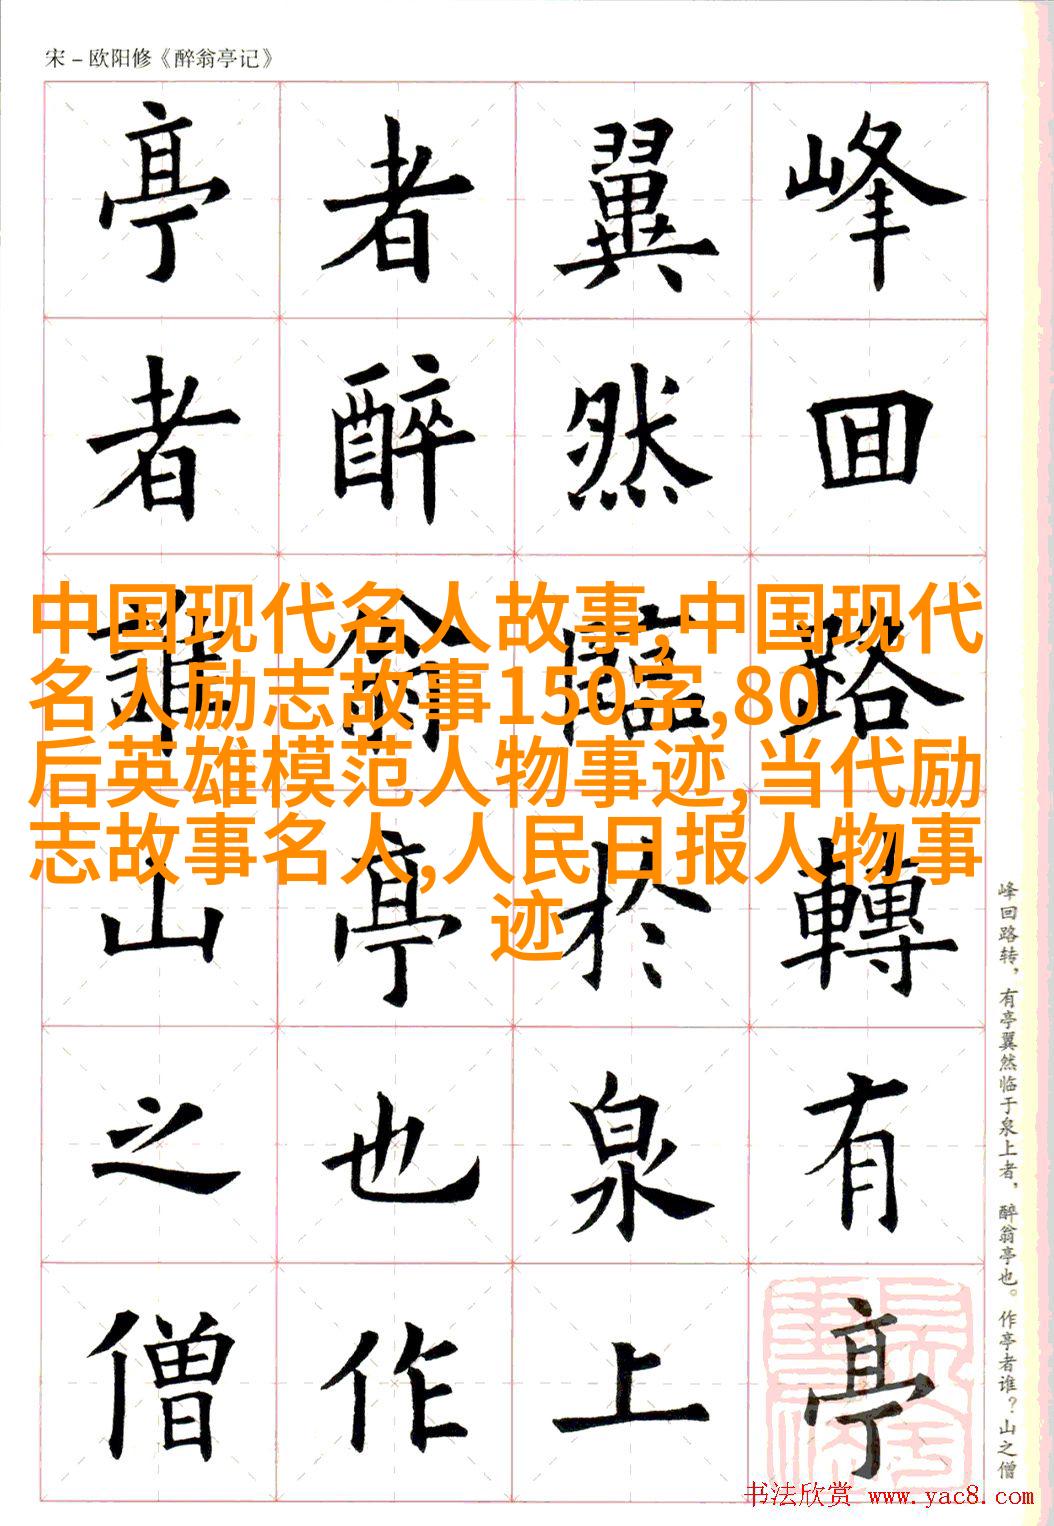 宋－欧阳修《醉翁亭记》
峰囬路轉有亭
翼然臨於泉上
者醉翁亭也作
亭者誰山之僧
中国现代名人故事,中国现代
名人励志故事150字,80
后英雄模范人物事迹,当代励
志故事名人,人民日报人物事
迹
峰回路转，有亭翼然临于泉上者，醉翁亭也。作亭者谁？山之僧
书法欣赏 www.yac8.com